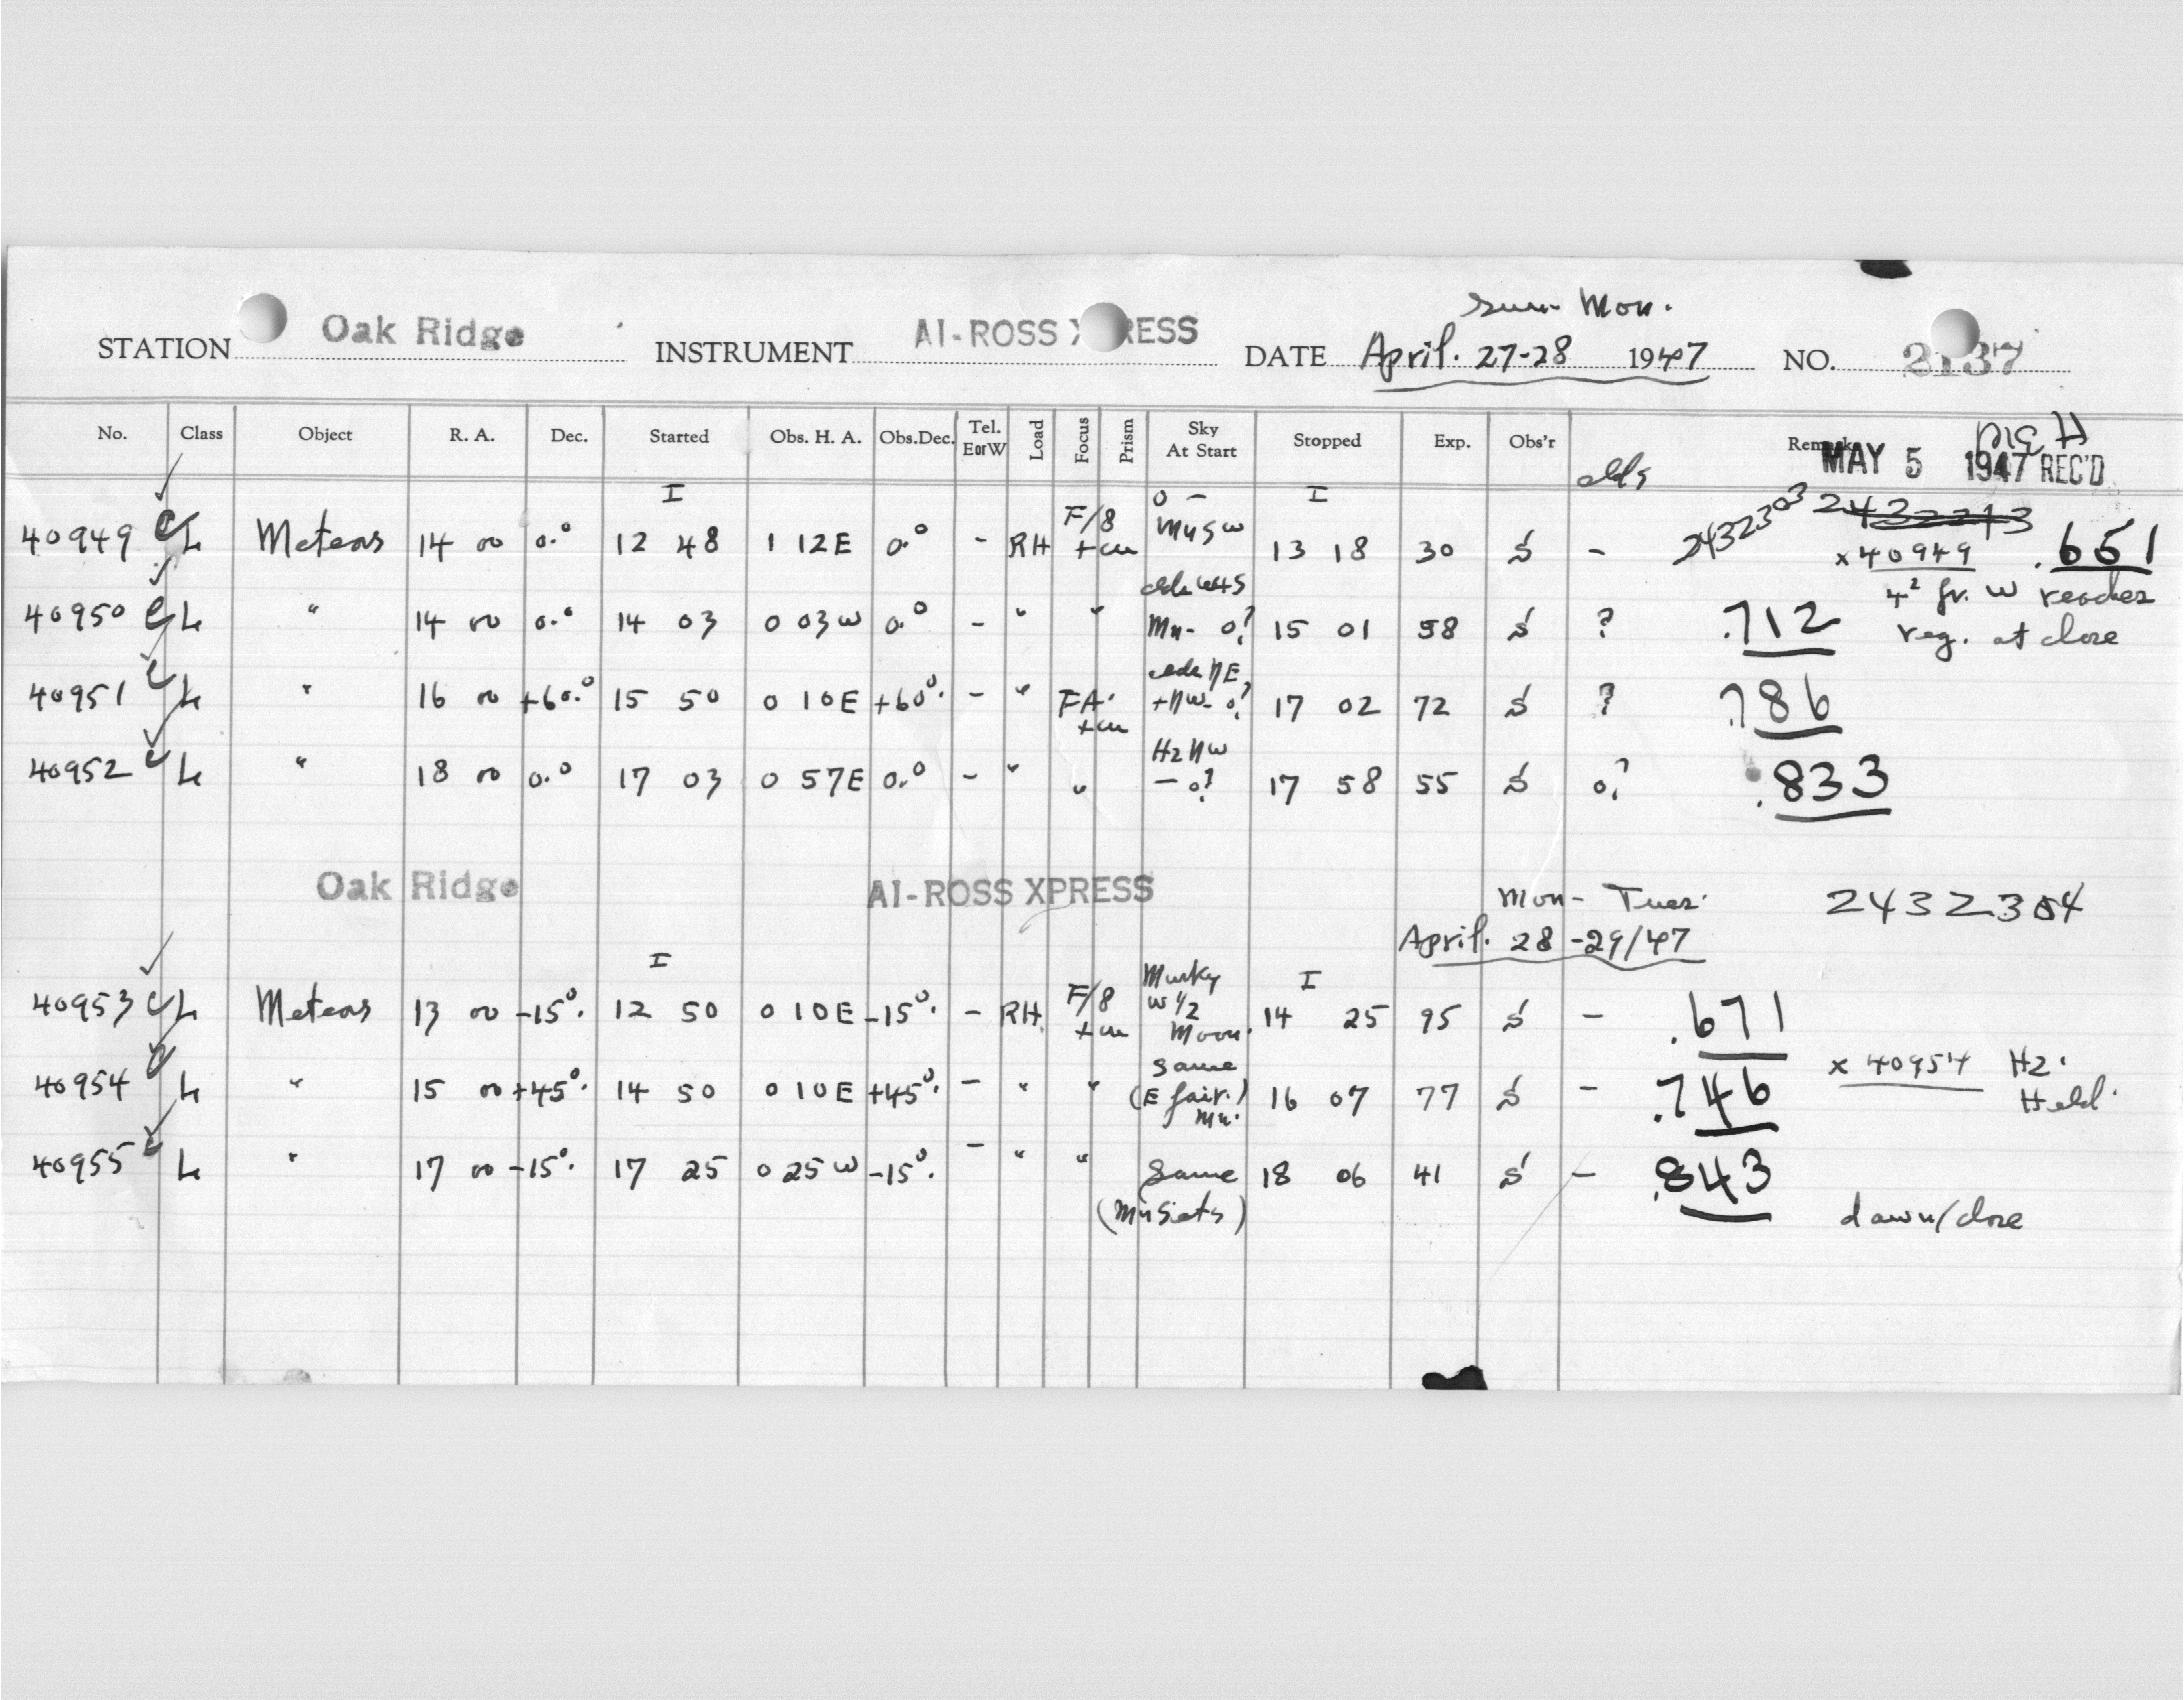 Sun- Mon.
STATION Oak Ridge INSTRUMENT AI-ROSS XPRESS DATE April. 27-28 1947 NO. 2137
No. Class Object R. A. Dec. Started Obs. H. A. Obs.Dec. Tel. E or W Load Focus Prism Sky At Start Stopped Exp. Obs'r Remarks
MAY 5 1947 REC'D
I I
2432303 2432213
40949 L Meteors 14 00 0.° 12 48 1 12E 0.° - RH F/8 0 - 13 18 30 S - x 40949 .651
40950 L " 14 00 0.° 14 03 0 03W 0.° - " " Mn- 0? 15 01 58 S ? .712 reaches
reg. at close
40951 L " 16 00 +60.° 15 50 0 10E +60°. - " FA. +NW- 0? 17 02 72 S ? .786
40952 L " 18 00 0.° 17 03 0 57E 0.° - " " Hz NW - 0? 17 58 55 S 0? .833
Oak Ridge AI-ROSS XPRESS Mon- Tues. 2432304
April. 28-29/47
I I
40953 L Meteors 13 00 -15°. 12 50 0 10E -15°. - RH. F/8 Murky W 1/2 Moon. 14 25 95 S - .671
40954 L " 15 00 +45°. 14 50 0 10E +45°. - " " same (E fair.) Mn. 16 07 77 S - .746 x 40954 Hz. Held.
40955 L " 17 00 -15°. 17 25 0 25W -15°. - " " Same 18 06 41 S - .843
(Mn Sets) dawn/close